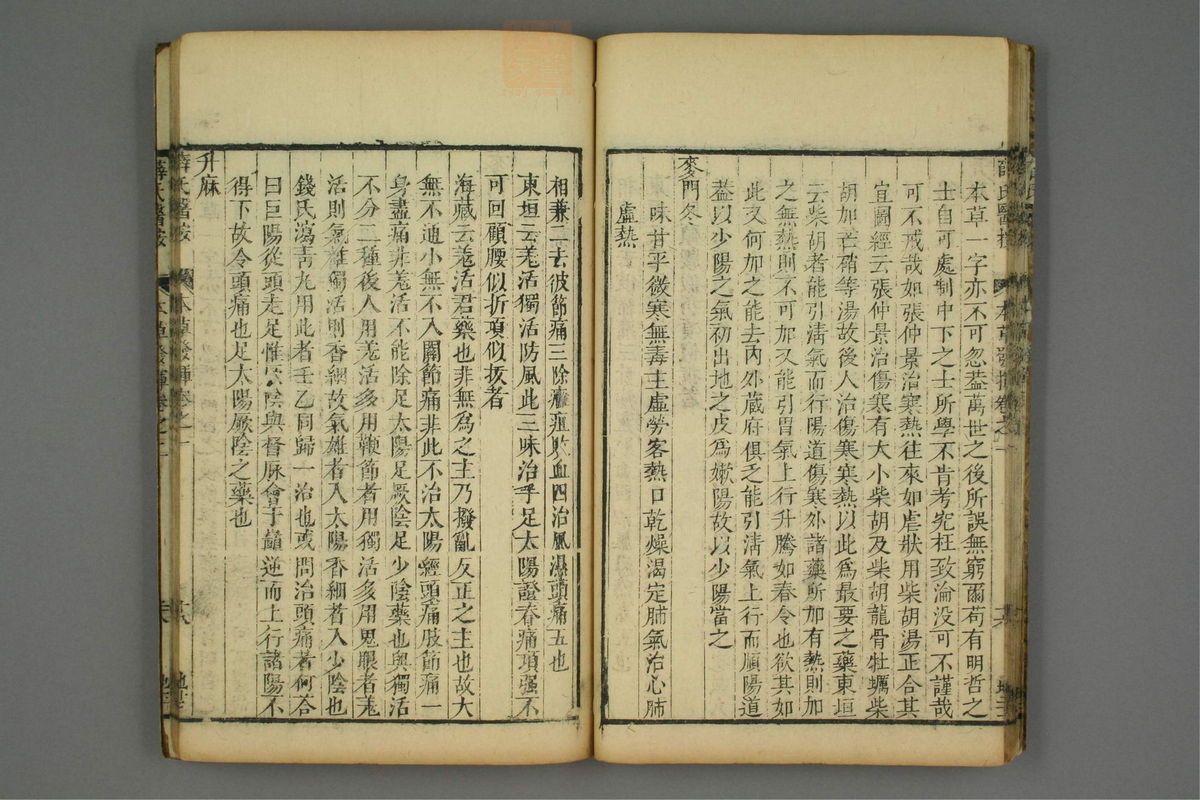 本草一字亦不可忽蓋萬世之後所誤無窮爾苟有明哲之
士自可處制中下之士所學不肯考究枉致淪没可不謹哉
可不戒哉如張仲景治寒熱往來如虐狀用柴胡湯正合其
宜圖經云張仲景治傷寒有大小柴胡及柴胡龍骨牡蠣柴
胡加芒硝等湯故後人治傷寒寒熱以此爲最要之藥東垣
云柴胡者能引淸氣而行陽道傷寒外諸藥所加有熱則加
之無熱則不可加又能引胃氣上行升騰如春令也欲其如
此又何加之能去内外蔵府俱乏能引淸氣上行而順陽道
葢以少陽之氣初出地之皮爲嫰陽故以少陽當之
麥門冬
味甘平微寒無毒主虛勞客熱口乾燥渴定肺氣治心肺
虛熱
相兼二去彼節痛三除癰疽敗血四治風濕頭痛五也
東垣云羗活獨活防風此三味治手足太陽證脊痛項强不
可回顧腰似折項似抜者
海藏云羗活君藥也非無爲之主乃撥亂反正之主也故大
無不通小無不入關節痛非此不治太陽經頭痛肢節痛一
身盡痛非羗活不能除足太陽足厥陰足少陰藥也與獨活
不分二種後人用羗活多用鞭節者用獨活多用鬼眼者羗
活則氣雄獨活則香細故氣雄者入太陽香細者入少陰也
錢氏瀉靑丸用此者壬乙同歸一治也或問治頭痛者何答
曰巨陽從頭走足惟厥陰與督脉會于巓逆而上行諸陽不
得下故令頭痛也足太陽厥陰之藥也
升麻
薛氏醫按
本草發揮卷之二